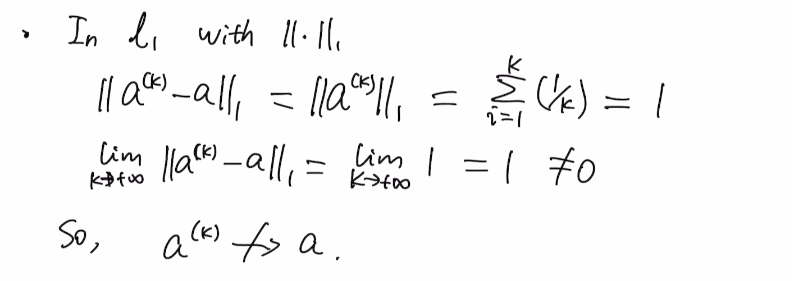 · In ℓ₁ with ||·||₁
||a⁽ᵏ⁾-a||₁ = ||a⁽ᵏ⁾||₁ = Σ_{i=1}^{K} (1/k) = 1
lim_{k→+∞} ||a⁽ᵏ⁾-a||₁ = lim_{k→+∞} 1 = 1 ≠0
So, a⁽ᵏ⁾ ↛ a.